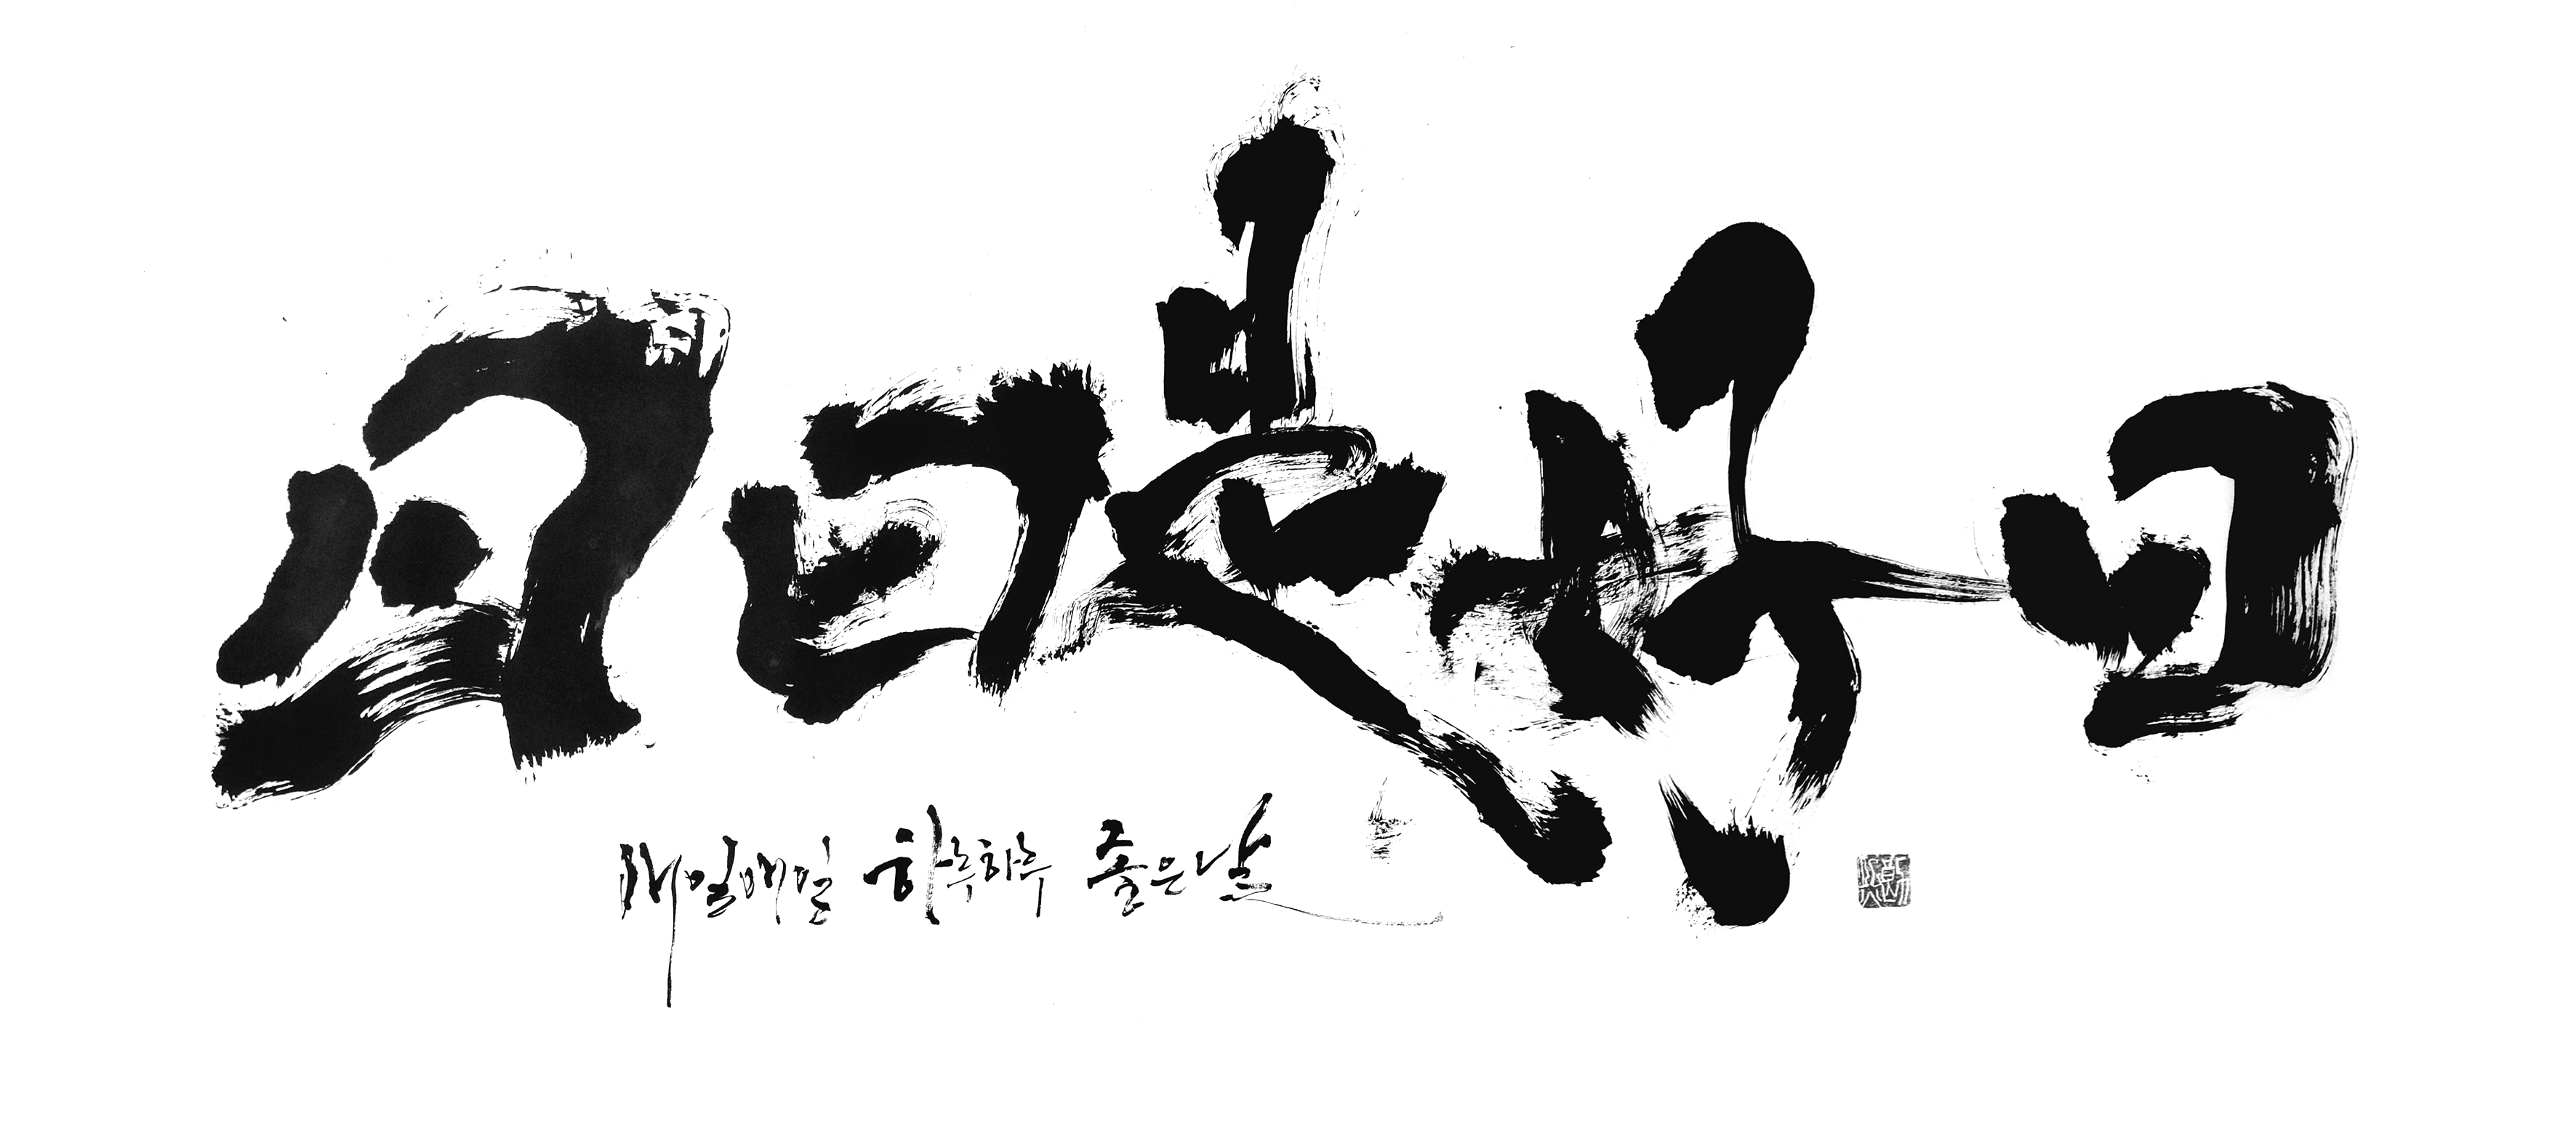 日日是好日
매일매일 하루하루 좋은날